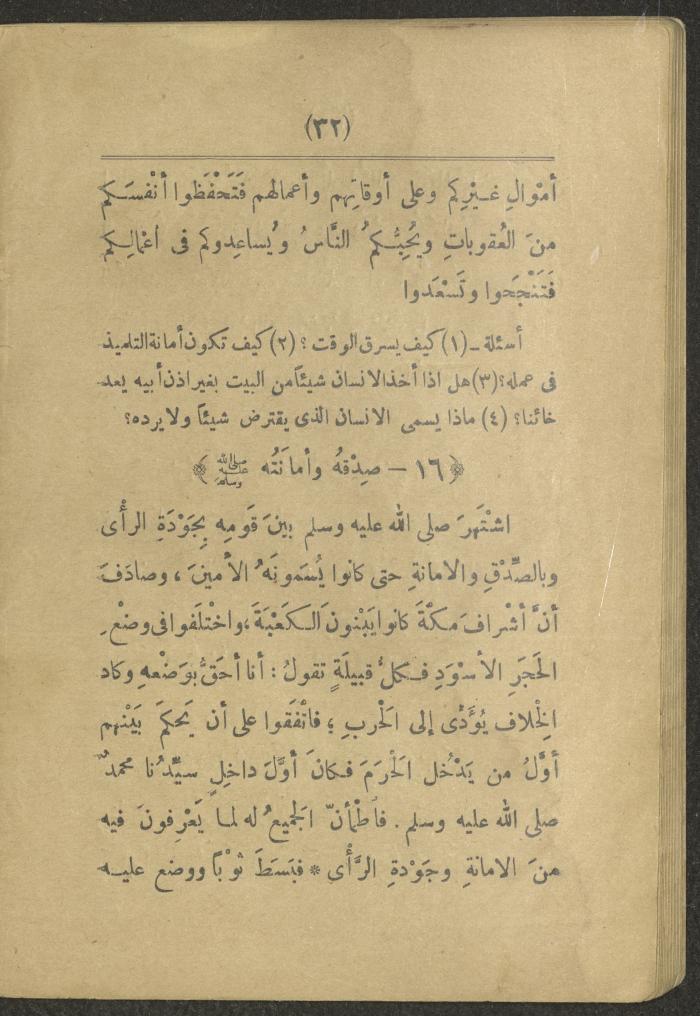 (٣٢)
أمْوالِ غيْرِكم وعلى أوقاتِهم وأعمالهم فَتَحْفَظوا أنْفسَكم
منَ العُقوباتِ ويُحِبُّكمُ النَّاسُ ويُساعِدوكم فى أعْمالِكم
فَتَنْجَحوا وتَسْعَدوا
أسئلة ــ (١) كيف يسرق الوقت؟ (٢) كيف تكون أمانة التلميذ
فى عمله؟ (٣) هل اذا أخذ الانسان شيئاً من البيت بغير اذن أبيه يعد
خائنا؟ (٤) ماذا يسمى الانسان الذى يقترض شيئاً ولا يرده؟
﴿ ١٦ — صِدْقهُ وأمانَتُه صلى الله عليه وسلم ﴾
اشْتَهَرَ صلى الله عليه وسلم بينَ قَومِه بِجَوْدَةِ الرأْى
وبالصِّدْقِ والامانةِ حتى كانوا يُسَمونَهُ الأمينَ، وصادَفَ
أنَّ أشْرافَ مكَّةَ كانوا يَبْنونَ الكَعْبَةَ، واخْتلَفوا فى وضْعِ
الحَجَرِ الأسْوَدِ فكلُّ قبيلَةٍ تقولُ: أنا أحَقُّ بوَضْعهِ وكاد
الخِلاف يُؤَدّى إلى الحَربِ؛ فاتْفَقوا على أن يَحكمَ بَيْنهم
أوَّلُ من يَدْخُل الحَرَمَ فكانَ أوَّلَ داخلٍ سيِّدُنا محمدٌ
صلى الله عليه وسلم. فاطْمأنّ الجميعُ له لما يَعْرِفونَ فيه
منَ الامانةِ وجَوْدةِ الرَّأْى * فبَسَطَ ثوْباً ووضع عليه